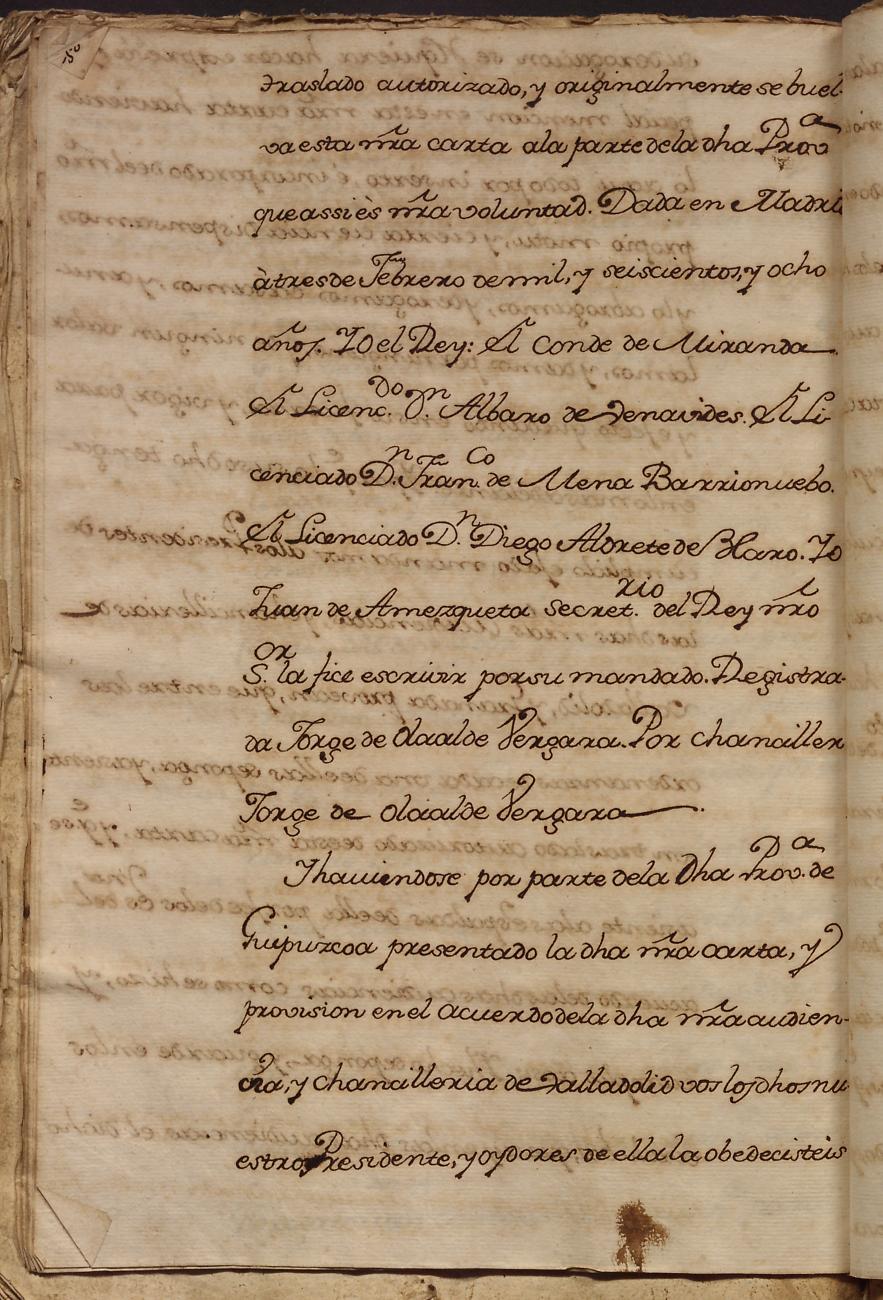 traslado autorizado, y originalmente se buel-
va esta nr̃a carta ala parte dela dha Prov.a
que assi ès nr̃a voluntad. Dada en Madrid
à tres de Febrero de mil, y seiscientos, y ocho
años. Yo el Rey: El Conde de Miranda
El Licenc.do D.n Albaro de Venavides. El Li-
cenciado D.n Fran.co de Mena Barrionuebo.
El Licenciado D.n Diego Aldrete de Haro. Yo
Juan de Amezqueta secret.rio del Rey nr̃o
S.or la fice escrivir por su mandado. Registra-
da Jorge de Olaalde Vergara. Por chanciller
Jorge de Olaalde Vergara
Y haviendose por parte dela dha Prov.a de
Guipuzcoa presentado la dha nr̃a carta, y
provision en el Acuerdo dela dha nr̃a audien-
cia, y chancilleria de Valladolid vos los dhos nu-
estro Presidente, y oydores de ella la obedecisteis